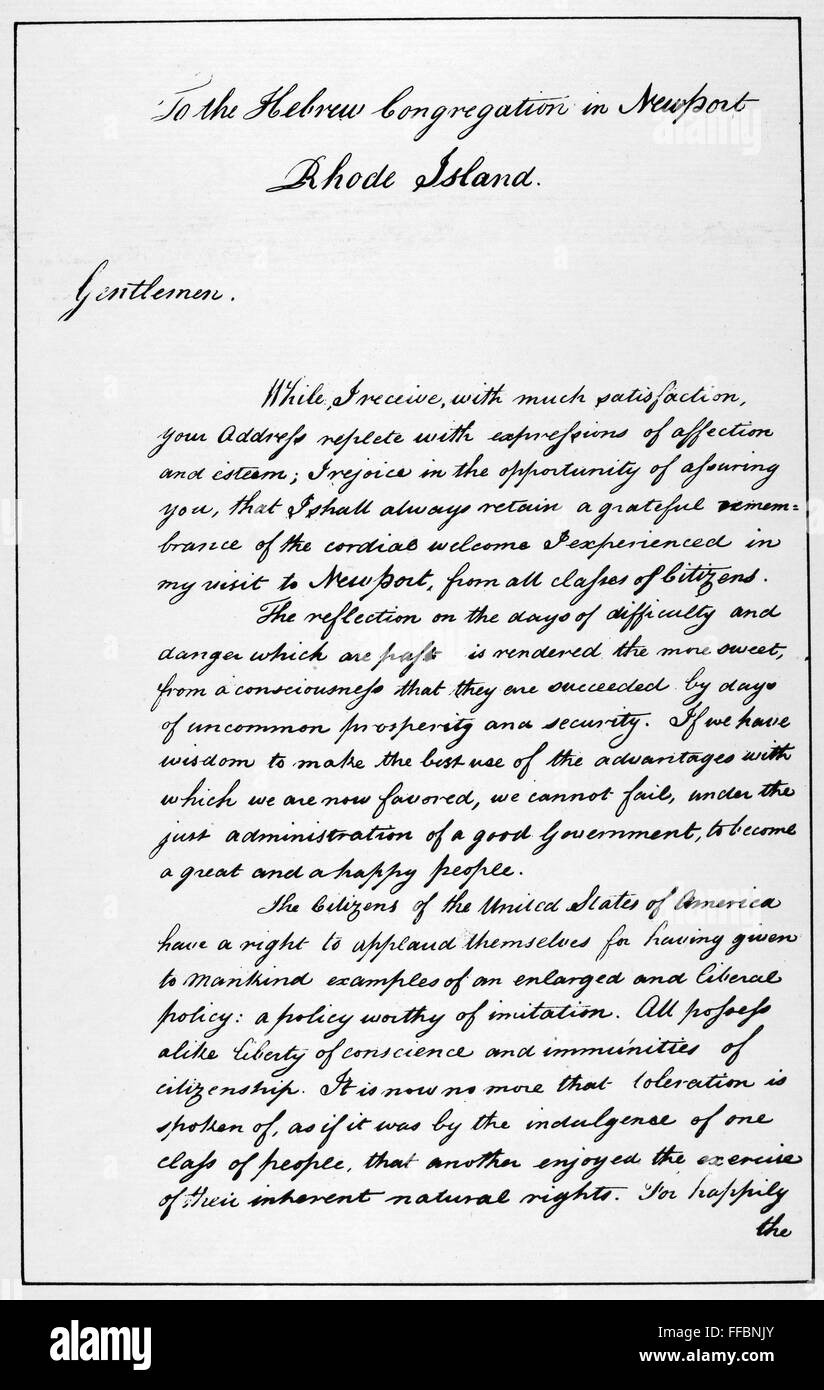 To the Hebrew Congregation in Newport
Rhode Island.
Gentlemen.
While, I receive, with much satisfaction,
your Address replete with expressions of affection
and esteem; I rejoice in the opportunity of assuring
you, that I shall always retain a grateful remem=
brance of the cordial welcome I experienced in
my visit to Newport, from all classes of Citizens.
The reflection on the days of difficulty and
danger which are past is rendered the more sweet,
from a consciousness that they are succeeded by days
of uncommon prosperity and security. If we have
wisdom to make the best use of the advantages with
which we are now favored, we cannot fail, under the
just administration of a good Government, to become
a great and a happy people.
The Citizens of the United States of America
have a right to applaud themselves for having given
to Mankind examples of an enlarged and liberal
policy: a policy worthy of imitation. All possess
alike liberty of conscience and immunities of
citizenship. It is now no more that toleration is
spoken of, as if it was by the indulgence of one
class of people, that another enjoyed the exercise
of their inherent natural rights. For happily
the
alamy
alamy
Image ID: FFBNJY
www.alamy.com